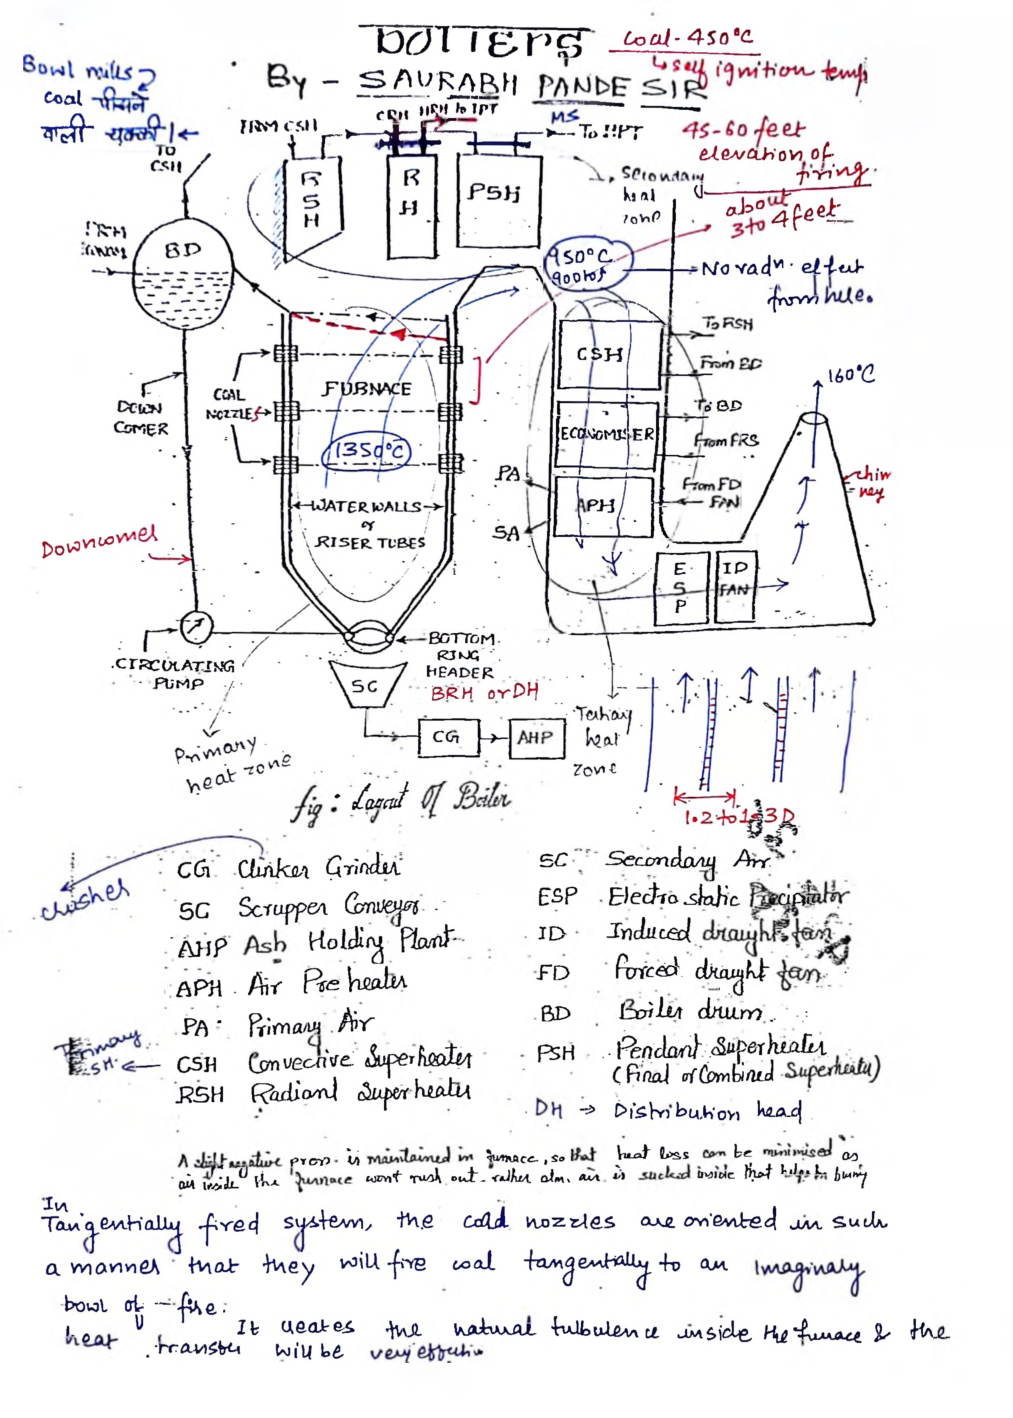 BOILERS
By - SAURABH PANDE SIR
coal - 450°C
↳ self ignition temp
Bowl mills
coal पीसने
वाली चक्की।←
TO
CSH
FROM CSH
CRH
HRH to IPT
MS
To HPT
45-60 feet
elevation of
firing.
about
3 to 4 feet
Secondary
heat
zone
RSH
RH
PSH
BD
950°C
No radn. effect
from here.
To RSH
CSH
From BD
To BD
ECONOMISER
From FRS
From FD
FAN
APH
PA
SA
160°C
chim
ney
COAL
NOZZLES
FURNACE
1350°C
WATER WALLS
or
RISER TUBES
DOWN
COMER
Downcomer
ESP
ID
FAN
CIRCULATING
PUMP
BOTTOM
RING
HEADER
BRH or DH
SC
CG
AHP
Primary
heat zone
Tertiary
heat
zone
1.2 to 1.3 D
fig : Layout Of Boiler
crusher
CG Clinker Grinder
SC Scrupper Conveyor
AHP Ash Holding Plant
APH Air Pre heater
PA Primary Air
CSH Convective Superheater
RSH Radiant Superheater
Primary
SH ←
SC Secondary Air
ESP Electro static Precipitator
ID Induced draught fan
FD forced draught fan
BD Boiler drum
PSH Pendant Superheater
(Final or Combined Superheater)
DH → Distribution head
A slight negative press. is maintained in furnace, so that heat loss can be minimised as
air inside the furnace wont rush out rather atm. air is sucked inside that helps in burning
In
Tangentially fired system, the coal nozzles are oriented in such
a manner that they will fire coal tangentially to an Imaginary
bowl of fire.
It creates the natural turbulence inside the furnace & the
heat transfer will be very effective